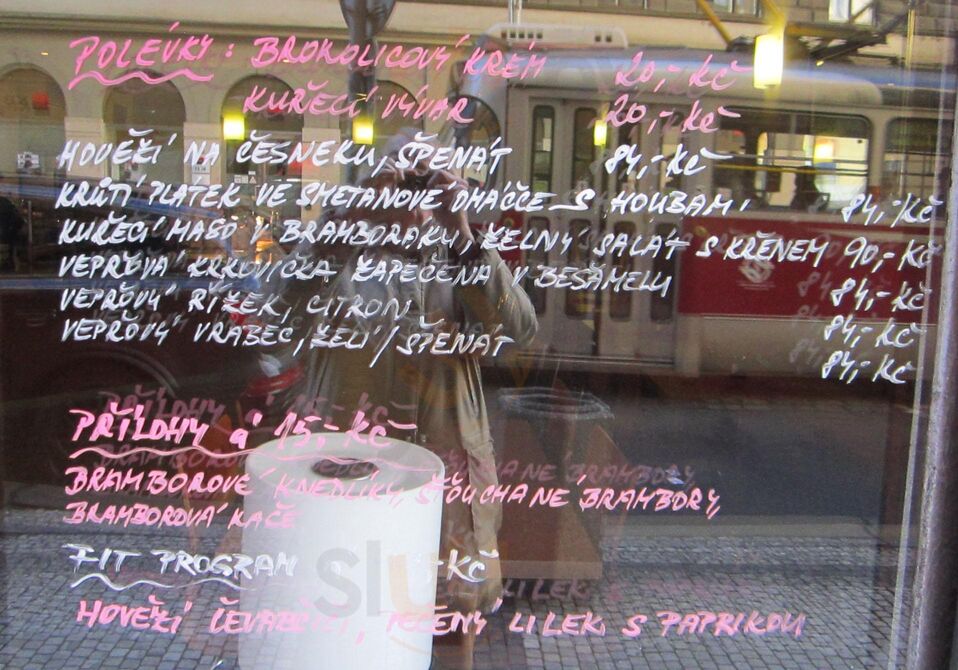 POLÉVKY: BROKOLICOVÝ KRÉM 20,- Kč
KUŘECÍ VÝVAR 20,- Kč
HOVĚŽÍ NA ČESNEKU, ŠPENÁT 84,- Kč
KRŮTÍ PLÁTEK VE SMETANOVÉ OMÁČCE S HOUBAMI 84,- Kč
KUŘECÍ MASO V BRAMBORÁKU, ZELNÝ SALÁT S KŘENEM 90,- Kč
VEPŘOVÁ KRKOVIČKA ZAPEČENÁ V BEŠAMELU 84,- Kč
VEPŘOVÝ ŘÍZEK, CITRON 84,- Kč
VEPŘOVÝ VRABEC, ZELÍ / ŠPENÁT 84,- Kč
PŘÍLOHY á 15,- Kč
BRAMBOROVÉ KNEDLÍKY, ŠŤOUCHANÉ BRAMBORY,
BRAMBOROVÁ KAŠE
FIT PROGRAM Kč
HOVĚŽÍ PEČENÝ LILEK S PAPRIKOU